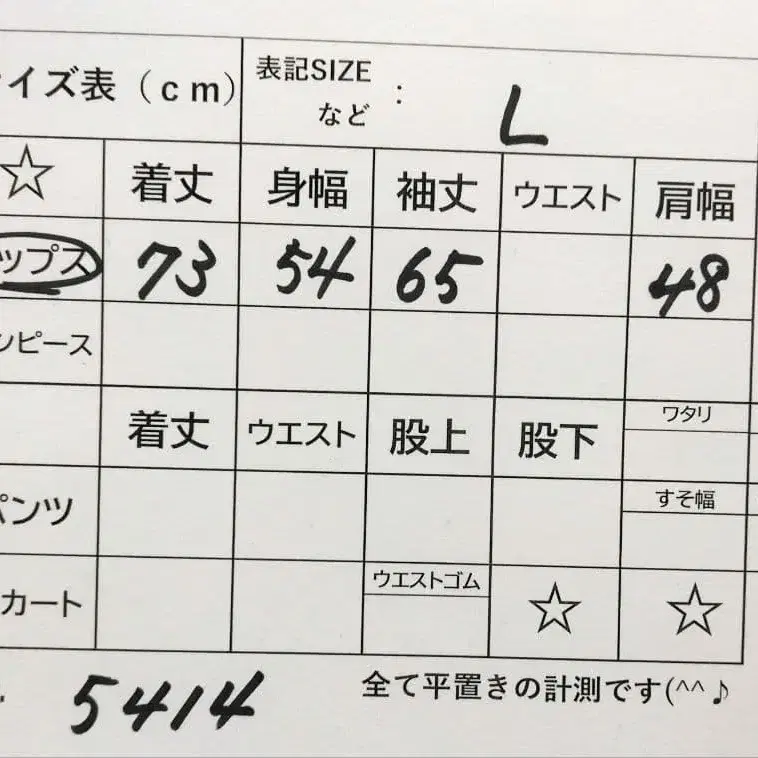 イズ表(cm) 表記SIZE など : L
☆ 着丈 身幅 袖丈 ウエスト 肩幅
ップス 73 54 65 48
ンピース
着丈 ウエスト 股上 股下 ワタリ
パンツ すそ幅
カート ウエストゴム ☆ ☆
5414 全て平置きの計測です(^^♪